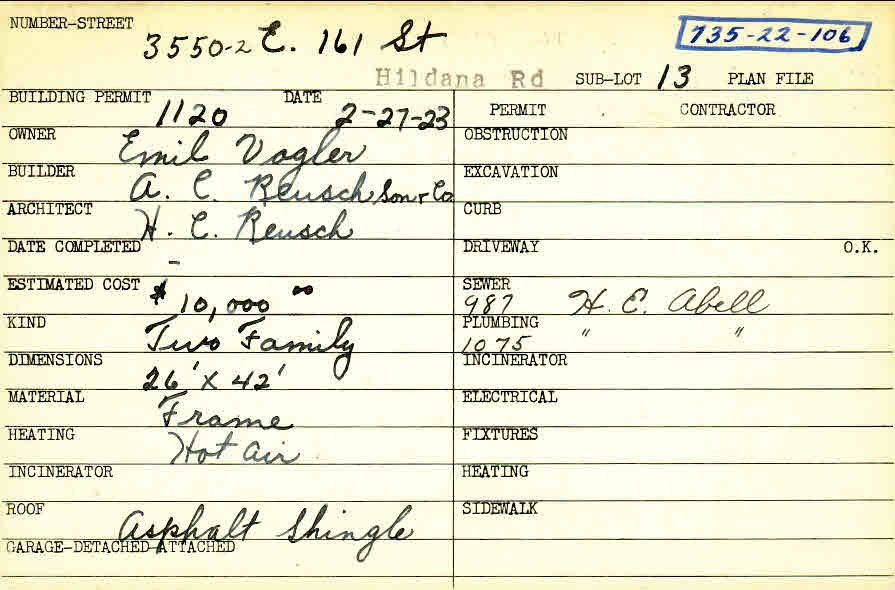 NUMBER-STREET 3550-2 E. 161 St 735-22-106
Hildana Rd SUB-LOT 13 PLAN FILE
BUILDING PERMIT 1120 DATE 2-27-23 PERMIT CONTRACTOR
OWNER Emil Vogler OBSTRUCTION
BUILDER A. C. Reusch Son & Co EXCAVATION
ARCHITECT H. C. Reusch CURB
DATE COMPLETED - DRIVEWAY O.K.
ESTIMATED COST $10,000 00 SEWER 987 H. E. Abell
KIND Two Family PLUMBING 1075 " "
DIMENSIONS 26' X 42' INCINERATOR
MATERIAL Frame ELECTRICAL
HEATING Hot Air FIXTURES
INCINERATOR HEATING
ROOF Asphalt Shingle SIDEWALK
GARAGE-DETACHED-ATTACHED